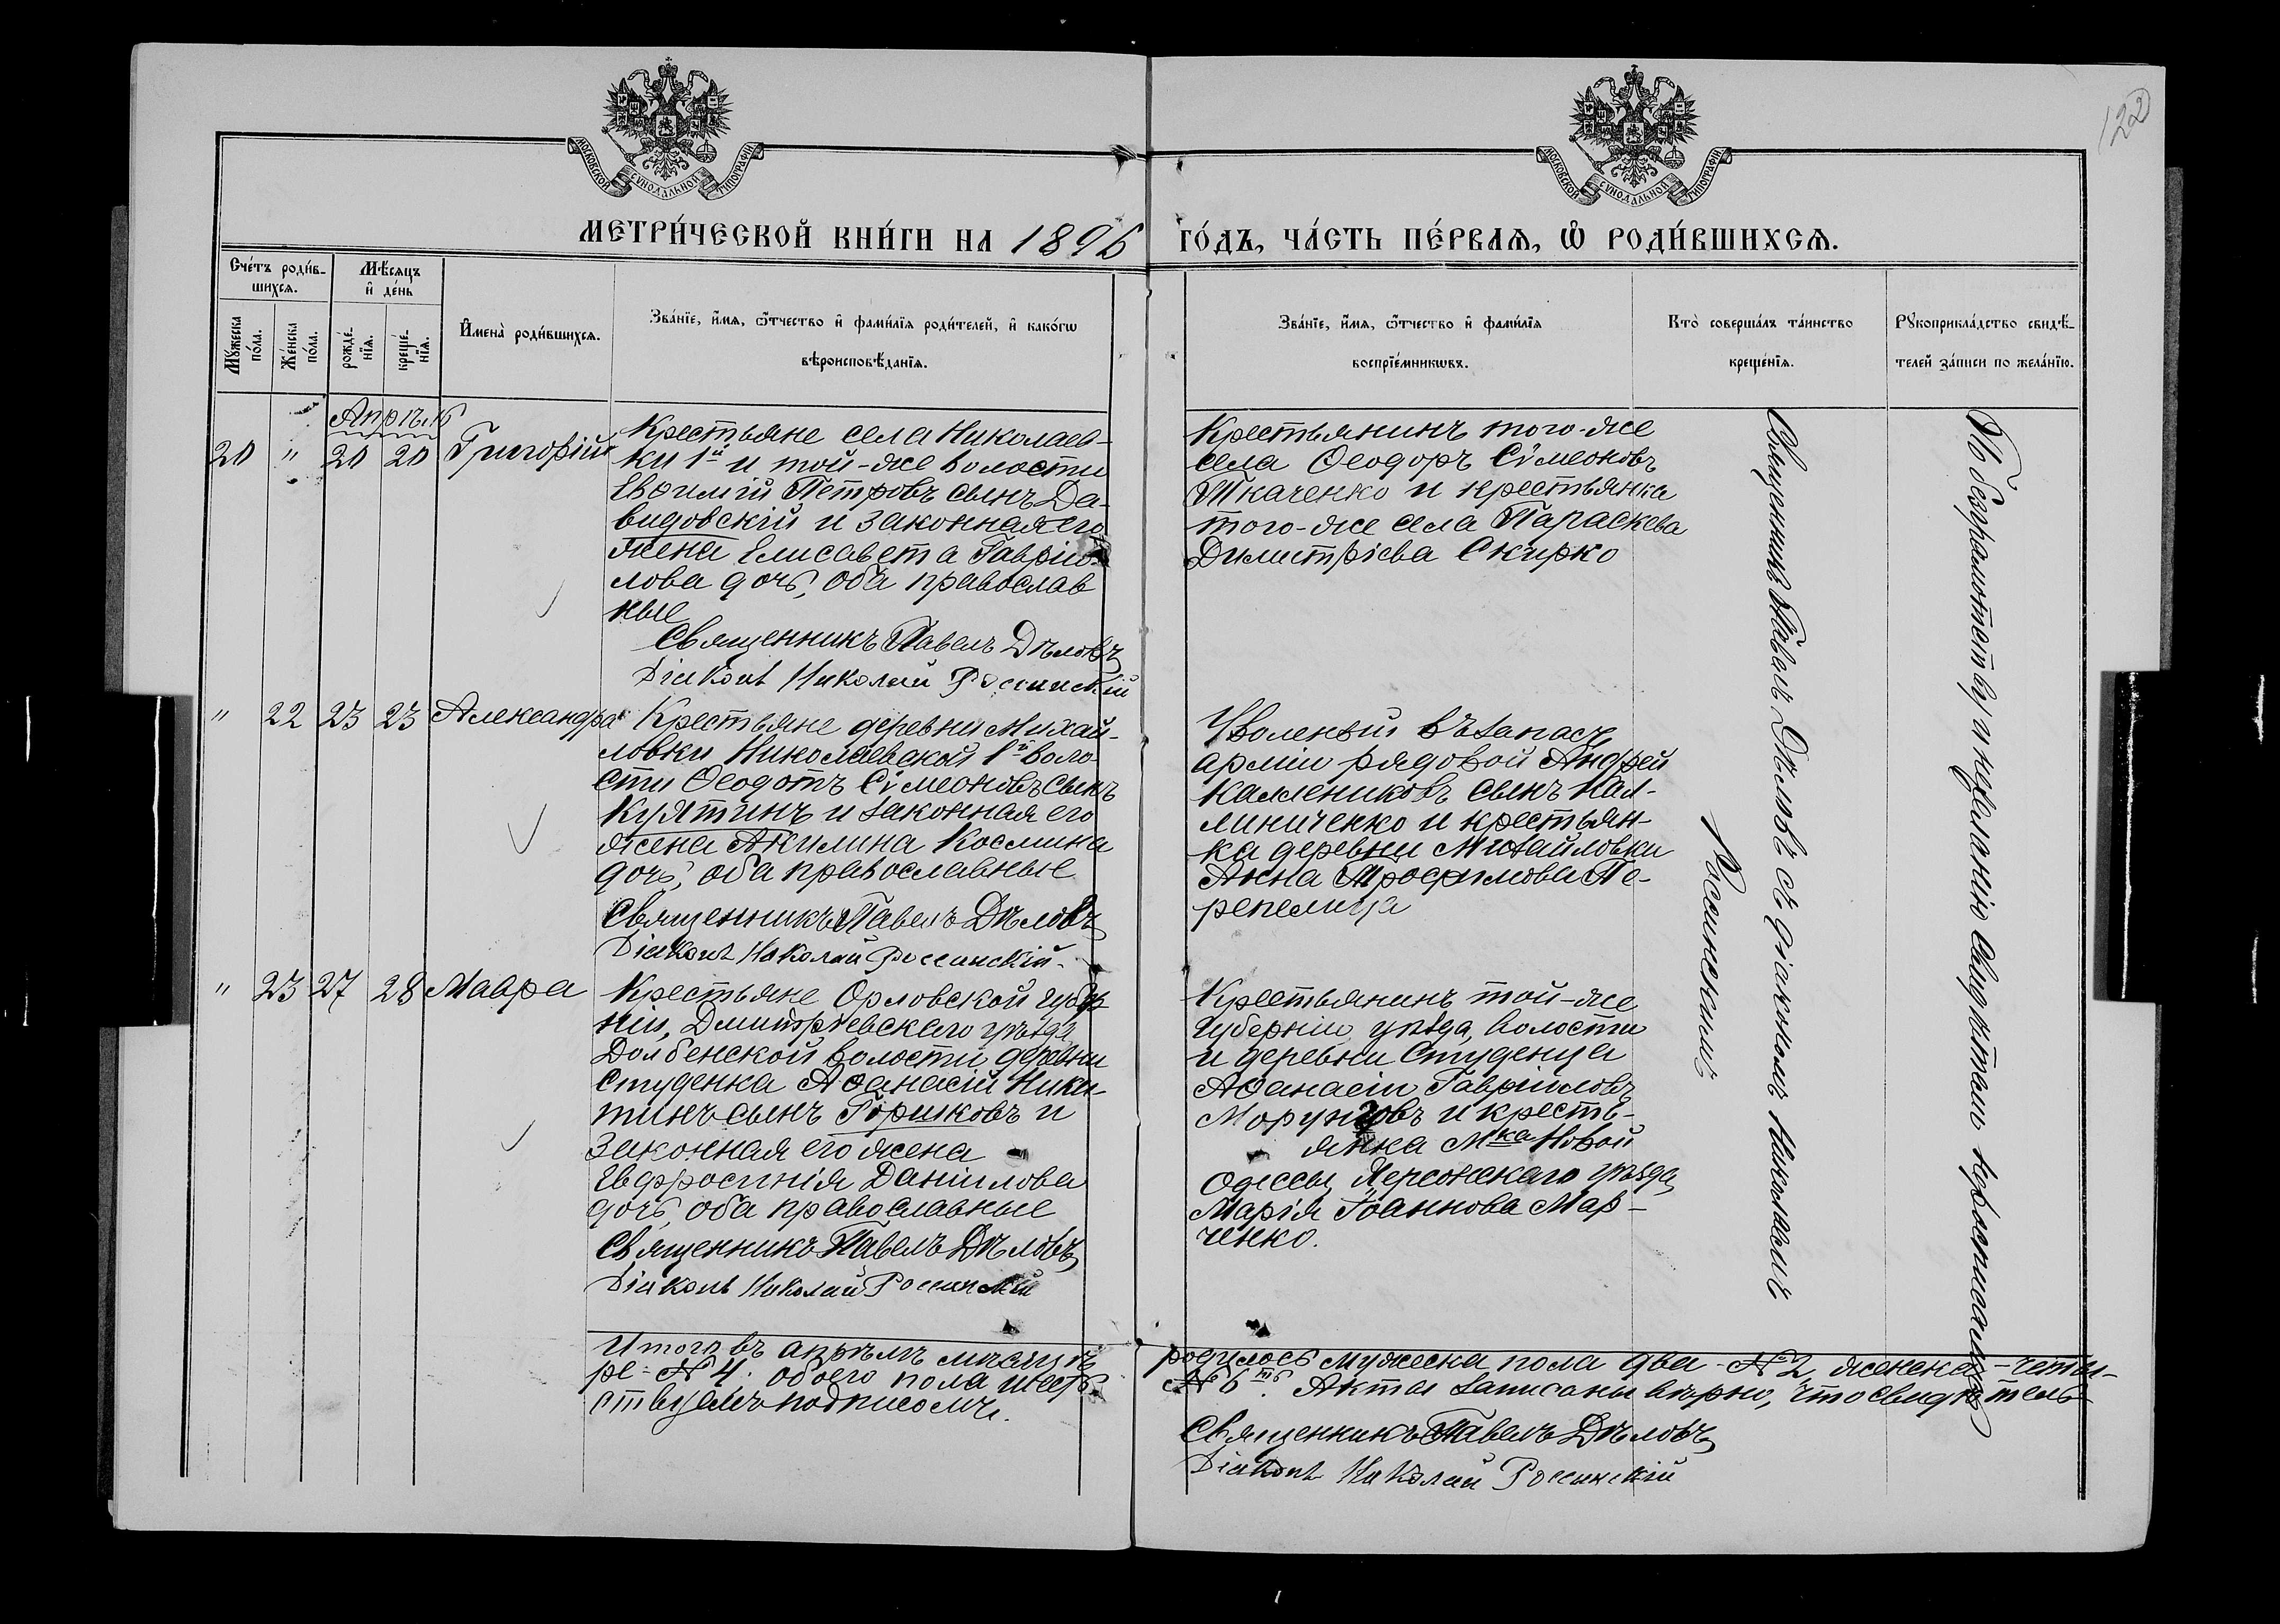 122
МОСКОВСКОЙ СѴНОДАЛЬНОЙ ТИПОГРАФІИ
МОСКОВСКОЙ СѴНОДАЛЬНОЙ ТИПОГРАФІИ
МЕТРИ́ЧЕСКОЙ КНИ́ГИ НА 1896 ГО́ДЪ, ЧА́СТЬ ПЕ́РВАѦ, Ѡ҆ РОДИ́ВШИХСѦ.
Сче́тъ роди́в-
шихсѧ.
Мѣ́сѧцъ
и҆ де́нь
Мꙋ́жеска
по́ла.
Же́нска
по́ла.
рожде́-
нїѧ.
креще́-
нїѧ.
И҆мена̀ роди́вшихсѧ.
Зва́нїе, и҆́мѧ, ѻ҆́тчество и҆ фами́лїѧ роди́телей, и҆ како́гѡ
вѣроисповѣ́данїѧ.
Зва́нїе, и҆́мѧ, ѻ҆́тчество и҆ фами́лїѧ
воспрїе́мникѡвъ.
Кто̀ соверша́лъ та́инство
креще́нїѧ.
Рꙋкоприкла́дство свидѣ́-
телей за́писи по жела́нїю.
Апрѣль
20 " 20 20 Григорій
Крестьяне села Николаев-
ки 1й и той-же волости
Евѳимій Петровъ сынъ Да-
видовскій и законная его
жена Елисавета Гавріи-
лова дочь, оба православ
ные
Священникъ Павелъ Дѣловъ
Діаконъ Николай Россинскій
Крестьянинъ того-же
села Ѳеодоръ Сѵмеоновъ
Ткаченко и крестьянка
того-же села Параскева
Димитріева Скирко
" 22 23 23 Александра
Крестьяне деревни Михай-
ловки Николаевской 1й воло-
сти Ѳеодотъ Сѵмеоновъ сынъ
Курятинъ и законная его
жена Акилина Космина
дочь, оба православные
Священникъ Павелъ Дѣловъ
Діаконъ Николай Россинскій
Уволеный въ запасъ
арміи рядовой Андрей
Каллениковъ сынъ Кал-
линиченко и крестьян-
ка деревни Михайловки
Анна Трофимова Пе-
репелица
" 23 27 28 Мавра
Крестьяне Орловской губер
ніи, Дмитріевскаго уѣзда,
Долбенской волости, деревни
Студенка Аѳанасій Ники-
тинъ сынъ Горшковъ и
законная его жена
Евфросинія Даніилова
дочь, оба православные
Священникъ Павелъ Дѣловъ
Діаконъ Николай Россинскій
Крестьянинъ той-же
губерніи, уѣзда, волости
и деревни Студенца
Аѳанасій Гавріиловъ
и кресть-
янка мка Новой
Одессы, Херсонскаго уѣзда,
Марія Іоаннова Мар-
ченко.
Священникъ Павелъ Дѣловъ съ діакономъ Николаемъ
Россинскимъ
По безграмотству и нежеланію свидѣтели не расписались
Итого въ апрѣлѣ мѣсяцѣ родилось мужеска пола два - № 2, женска - четы-
ре - № 4. обоего пола шесть № 6ть. Акты записаны вѣрно, что свидѣтель-
ствуемъ подписомъ.
Священникъ Павелъ Дѣловъ
Діаконъ Николай Россинскій